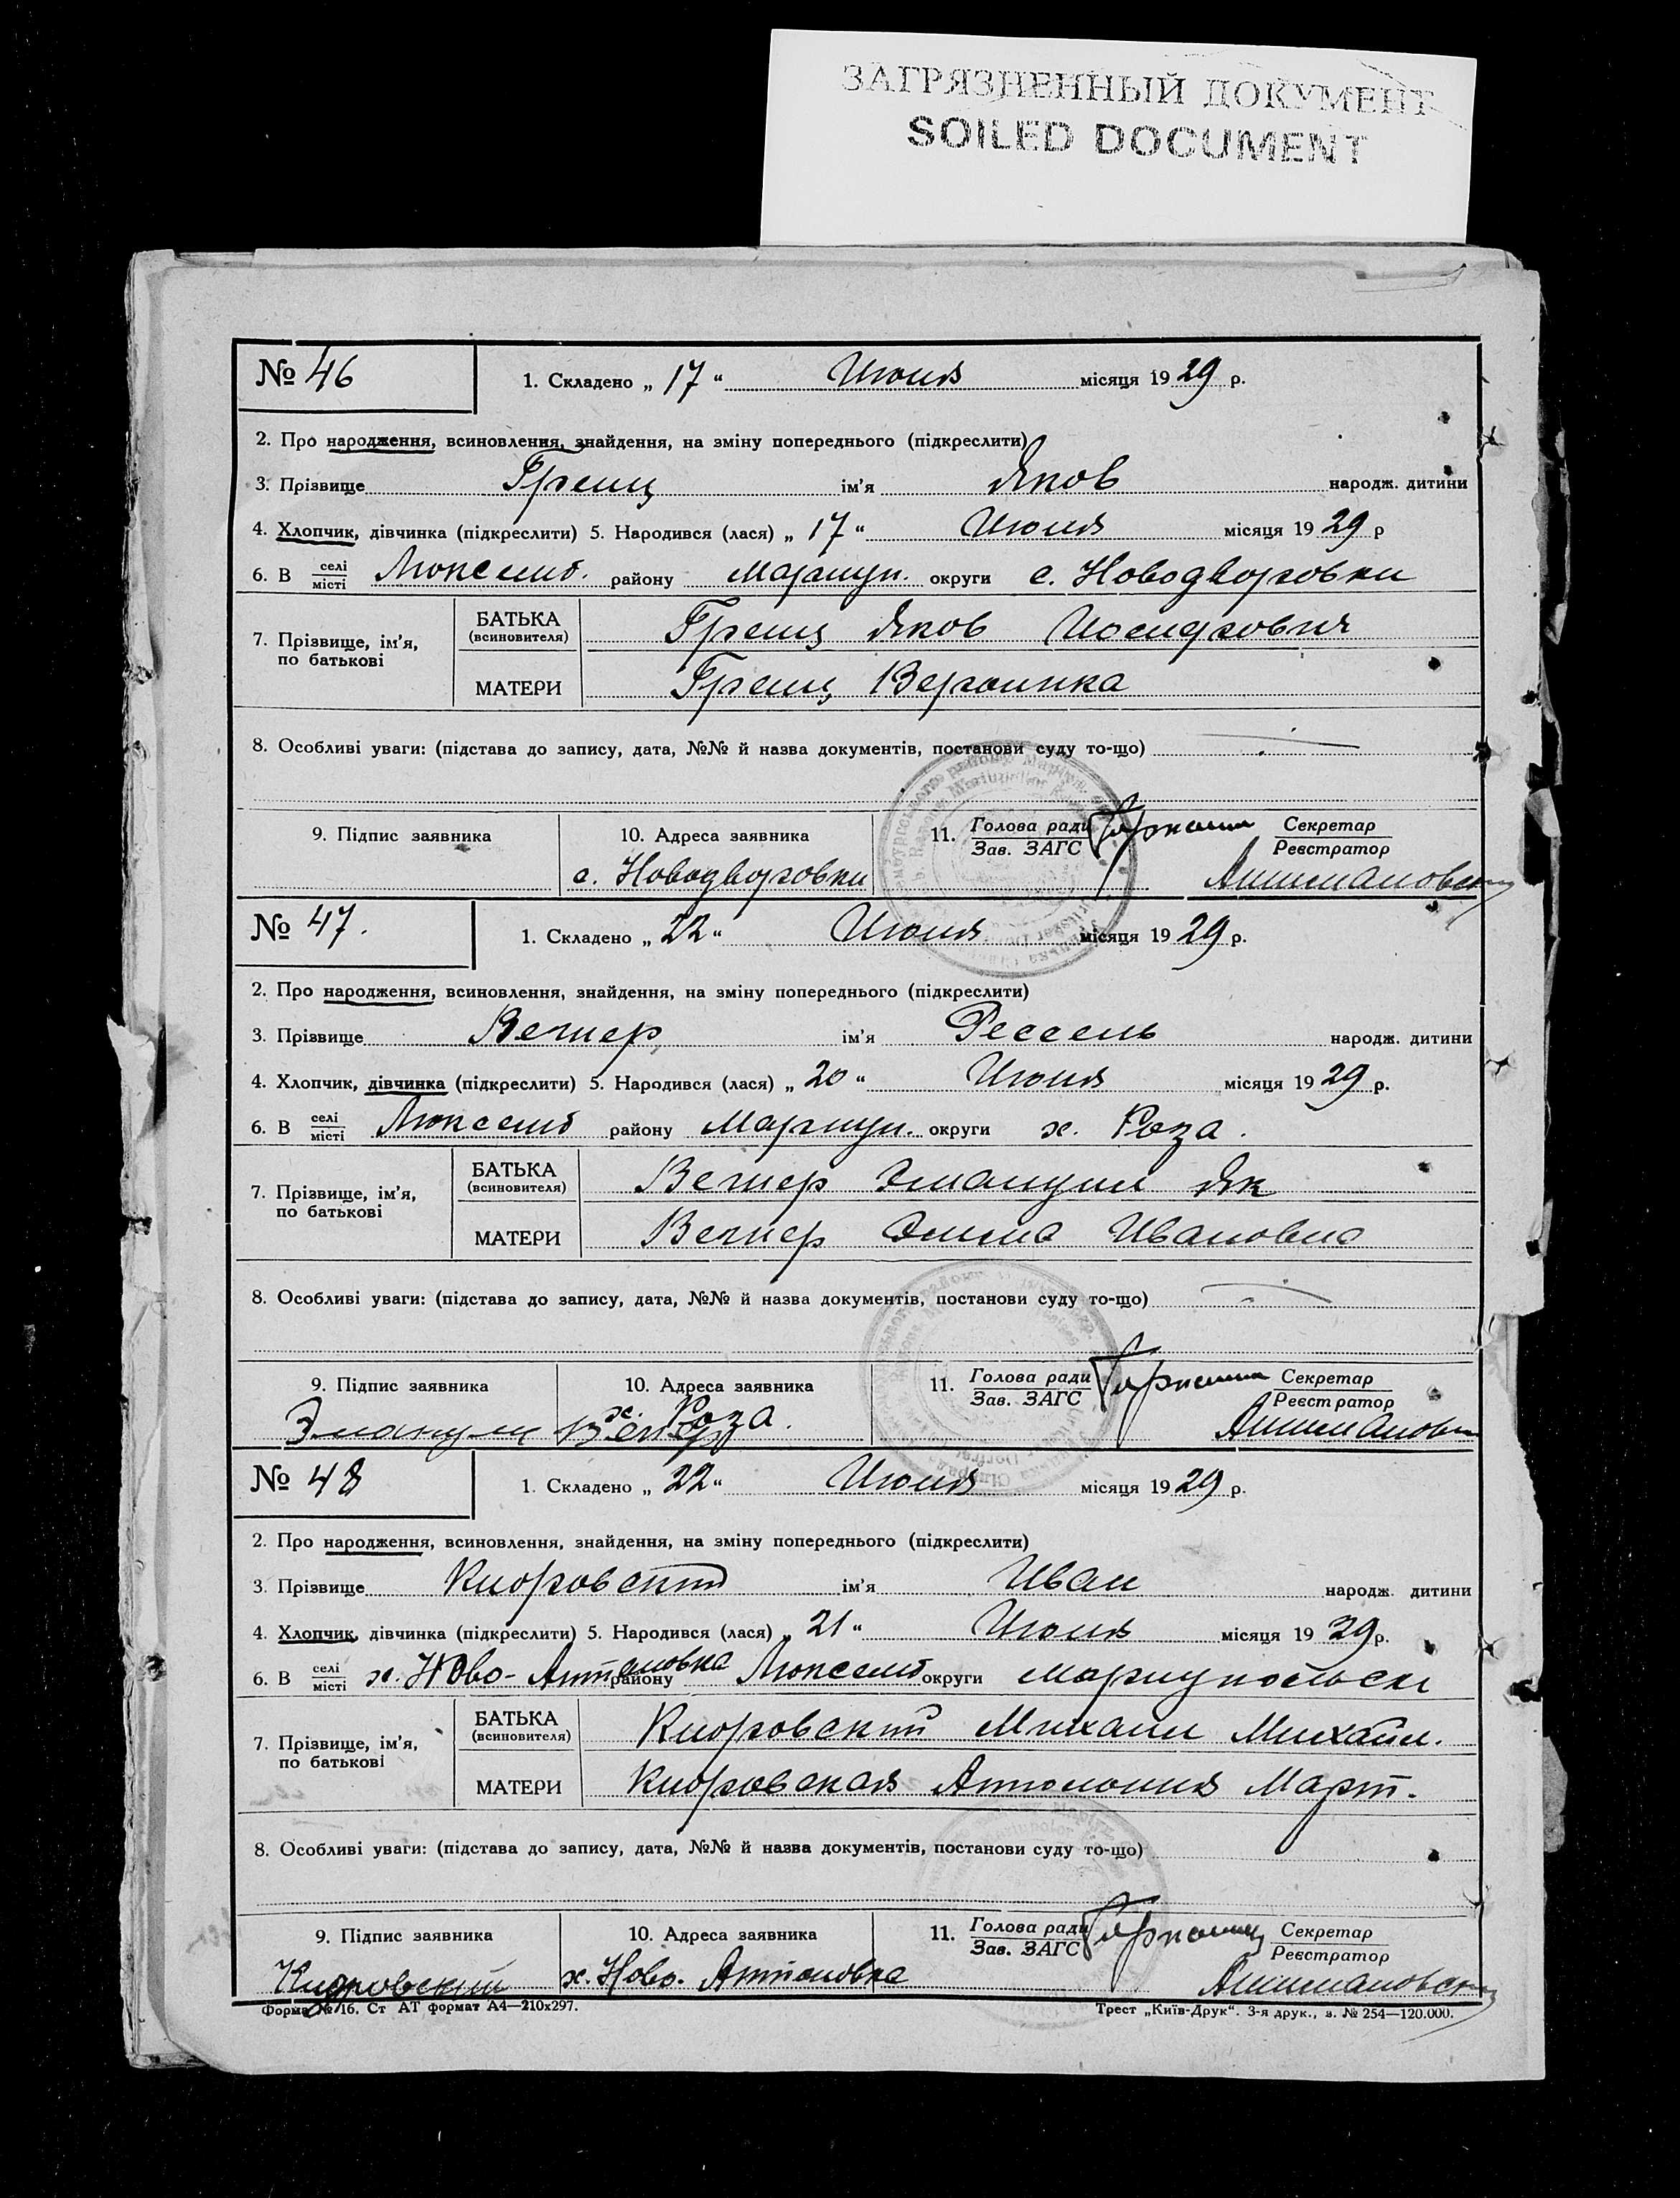 ЗАГРЯЗНЕННЫЙ ДОКУМЕНТ
SOILED DOCUMENT
№ 46
1. Складено „ 17 “ Июня місяця 1929 р.
2. Про народження, всиновлення, знайдення, на зміну попереднього (підкреслити)
3. Прізвище Грениц ім’я Яков народж. дитини
4. Хлопчик, дівчинка (підкреслити) 5. Народився (лася) „ 17 “ Июня місяця 1929 р
6. В селі місті Люксемб. району Мариуп. округи с. Новодворовки
7. Прізвище, ім’я, по батькові
БАТЬКА (всиновителя) Грениц Яков Иосифович
МАТЕРИ Грениц Вероника
8. Особливі уваги: (підстава до запису, дата, №№ й назва документів, постанови суду то-що)
9. Підпис заявника 10. Адреса заявника 11. Голова ради Зав. ЗАГС Секретар Реєстратор
с. Новодворовки
№ 47.
1. Складено „ 22 “ Июня місяця 1929 р.
2. Про народження, всиновлення, знайдення, на зміну попереднього (підкреслити)
3. Прізвище Вегнер ім’я народж. дитини
4. Хлопчик, дівчинка (підкреслити) 5. Народився (лася) „ 20 “ Июня місяця 1929 р.
6. В селі місті Люксемб району Мариуп. округи х. Роза.
7. Прізвище, ім’я, по батькові
БАТЬКА (всиновителя) Вегнер Эмануил Як
МАТЕРИ Вегнер Ивановна
8. Особливі уваги: (підстава до запису, дата, №№ й назва документів, постанови суду то-що)
9. Підпис заявника 10. Адреса заявника 11. Голова ради Зав. ЗАГС Секретар Реєстратор
Эмануил Вегнер х. Роза.
№ 48
1. Складено „ 22 “ Июня місяця 1929 р.
2. Про народження, всиновлення, знайдення, на зміну попереднього (підкреслити)
3. Прізвище Кноровский ім’я Иван народж. дитини
4. Хлопчик, дівчинка (підкреслити) 5. Народився (лася) „ 21 “ Июня місяця 1929 р.
6. В селі місті х. Ново-Антоновка району Люксемб округи Мариупольск
7. Прізвище, ім’я, по батькові
БАТЬКА (всиновителя) Кноровский Михаил Михайл.
МАТЕРИ Кноровская Март.
8. Особливі уваги: (підстава до запису, дата, №№ й назва документів, постанови суду то-що)
9. Підпис заявника 10. Адреса заявника 11. Голова ради Зав. ЗАГС Секретар Реєстратор
Кноровский х. Ново. Антоновка
Форма № 16. Ст АТ формат А4—210х297.
Трест „Київ-Друк“. 3-я друк., з. № 254—120.000.